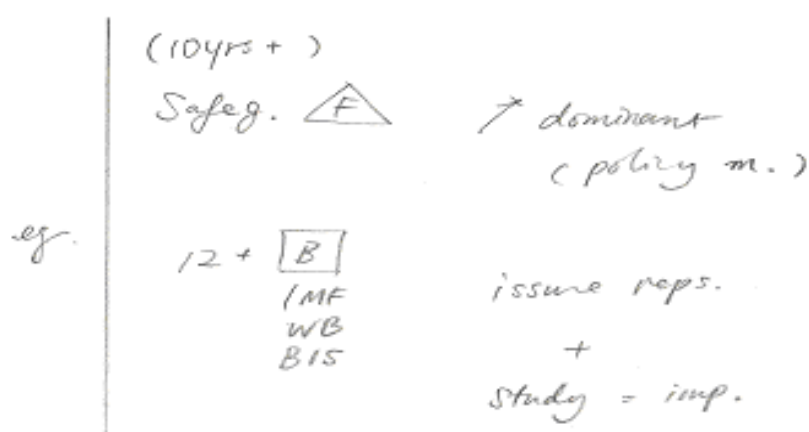 (10yrs + )
Safeg. F ↗ dominant
(policy m.)
eg. 12 + B
IMF
WB
BIS
issue reps.
+
study = imp.